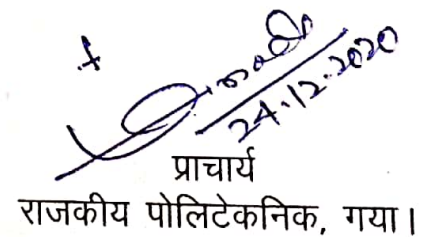 24.12.2020
प्राचार्य
राजकीय पोलिटेकनिक, गया।